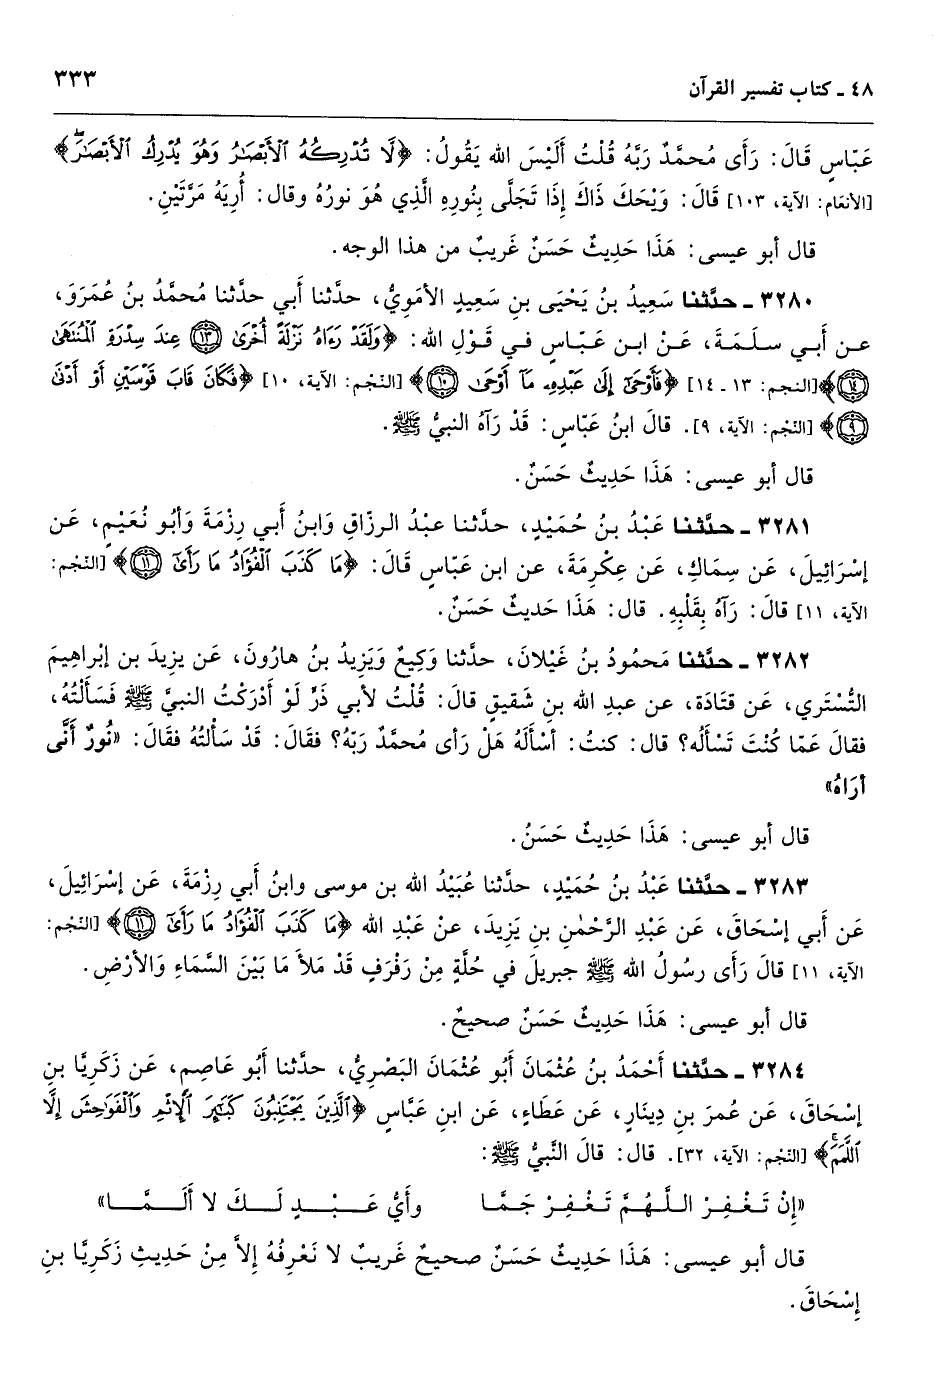 ٤٨ ـ كتاب تفسير القرآن
٣٣٣
عَبّاسٍ قَالَ: رَأَى مُحمَّدٌ رَبَّهُ قُلْتُ أَلَيْسَ الله يَقُولُ: ﴿لَا تُدْرِكُهُ الْأَبْصَارُ وَهُوَ يُدْرِكُ الْأَبْصَارَ﴾
[الأنعَام: الآية، ١٠٣] قَالَ: وَيْحَكَ ذَاكَ إِذَا تَجَلَّى بِنُورِهِ الَّذِي هُوَ نورُهُ وقال: أُرِيَهُ مَرَّتَيْنِ.
قال أبو عيسى: هَذَا حَدِيثٌ حَسَنٌ غَريبٌ من هذا الوجه.
٣٢٨٠ ـ حدَّثنا سَعِيدُ بنُ يَحْيَى بنِ سَعِيدٍ الأمَوِيُّ، حدَّثنا أَبي حدَّثنا مُحمَّدُ بنُ عُمَرَوَ،
عن أَبي سلَمَةَ، عَنْ ابنِ عَبّاسٍ في قَوْلِ الله: ﴿وَلَقَدْ رَءَاهُ نَزْلَةً أُخْرَىٰ ١٣ عِندَ سِدْرَةِ الْمُنتَهَىٰ
١٤﴾[النجم: ١٣ ـ ١٤] ﴿فَأَوْحَىٰ إِلَىٰ عَبْدِهِ مَا أَوْحَىٰ ١٠﴾ [النّجْم: الآية، ١٠] ﴿فَكَانَ قَابَ قَوْسَيْنِ أَوْ أَدْنَىٰ
٩﴾ [النّجْم: الآية، ٩]. قالَ ابنُ عَبّاسٍ: قَدْ رَآهُ النبيُّ ﷺ.
قال أبو عيسى: هَذَا حَدِيثٌ حَسَنٌ.
٣٢٨١ ـ حدَّثنا عَبْدُ بنُ حُمَيْدٍ، حدَّثنا عبْدُ الرزّاقِ وَابنُ أَبي رِزْمَةَ وَأبُو نُعَيْمٍ، عَن
إسْرَائِيلَ، عَن سِمَاكٍ، عَن عِكْرِمَةَ، عن ابن عَبّاسٍ قَالَ: ﴿مَا كَذَبَ الْفُؤَادُ مَا رَأَىٰ ١١﴾ [النّجْم:
الآية، ١١] قالَ: رَآهُ بِقَلْبِهِ. قال: هَذَا حَديثٌ حَسَنٌ.
٣٢٨٢ ـ حدَّثنا مَحمُودُ بنُ غَيْلانَ، حدَّثنا وَكِيعٌ وَيَزِيدُ بنُ هارُونَ، عَن يزِيدَ بن إبْراهِيمَ
التُّسْتَرِي، عَن قتَادَة، عن عبدِ الله بنِ شَقيقٍ قالَ: قُلْتُ لأبي ذَرٍّ لَوْ أدْرَكْتُ النبيَّ ﷺ فَسَألْتُهُ،
فقالَ عَمّا كُنْتَ تَسْأَلُه؟ قال: كنتُ: أسْأَلَهُ هَلْ رَأى مُحمَّدٌ رَبّهُ؟ فقَالَ: قَدْ سَألتُهُ فقَالَ: «نُورٌ أنَّى
أرَاهُ»
قال أبو عيسى: هَذَا حَدِيثٌ حَسَنُ.
٣٢٨٣ ـ حدَّثنا عَبْدُ بنُ حُمَيْدٍ، حدَّثنا عُبَيْدُ الله بن موسى وابنُ أَبي رِزْمَةَ، عَن إسْرَائِيلَ،
عَن أَبي إسْحَاقَ، عَن عَبْدِ الرَّحْمٰنِ بنِ يَزِيدَ، عنْ عَبْدِ الله ﴿مَا كَذَبَ الْفُؤَادُ مَا رَأَىٰ ١١﴾ [النّجْم:
الآية، ١١] قَالَ رَأَى رسُولُ الله ﷺ جبريلَ في حُلَّةٍ مِنْ رَفْرَفٍ قَدْ مَلأَ مَا بَيْنَ السَّمَاءِ وَالأرْضِ.
قال أبو عيسى: هَذَا حَدِيثٌ حَسَنٌ صحيحٌ.
٣٢٨٤ ـ حدَّثنا أَحْمَدُ بنُ عُثْمَانَ أَبُو عُثْمَانَ البَصْرِيُّ، حدَّثنا أَبُو عَاصِمٍ، عَن زَكَرِيَّا بنِ
إسْحَاقَ، عَن عُمرَ بنِ دِينَارٍ، عَن عَطَاءٍ، عَن ابنِ عَبَّاسٍ ﴿الَّذِينَ يَجْتَنِبُونَ كَبَٰئِرَ الْإِثْمِ وَالْفَوَٰحِشَ إِلَّا
اللَّمَمَ﴾ [النّجْم: الآية، ٣٢]. قال: قالَ النَّبيُّ ﷺ:
«إِنْ تَغْفِرْ اللَّهُمَّ تَغْفِرْ جَمَّا وأَيُّ عَبْدٍ لَكَ لا أَلَمَّا»
قال أبو عيسى: هَذَا حَدِيثٌ حَسَنٌ صحيحٌ غَريبٌ لا نَعْرِفُهُ إلاَّ مِنْ حَدِيثِ زَكَرِيَّا بنِ
إسْحَاقَ.